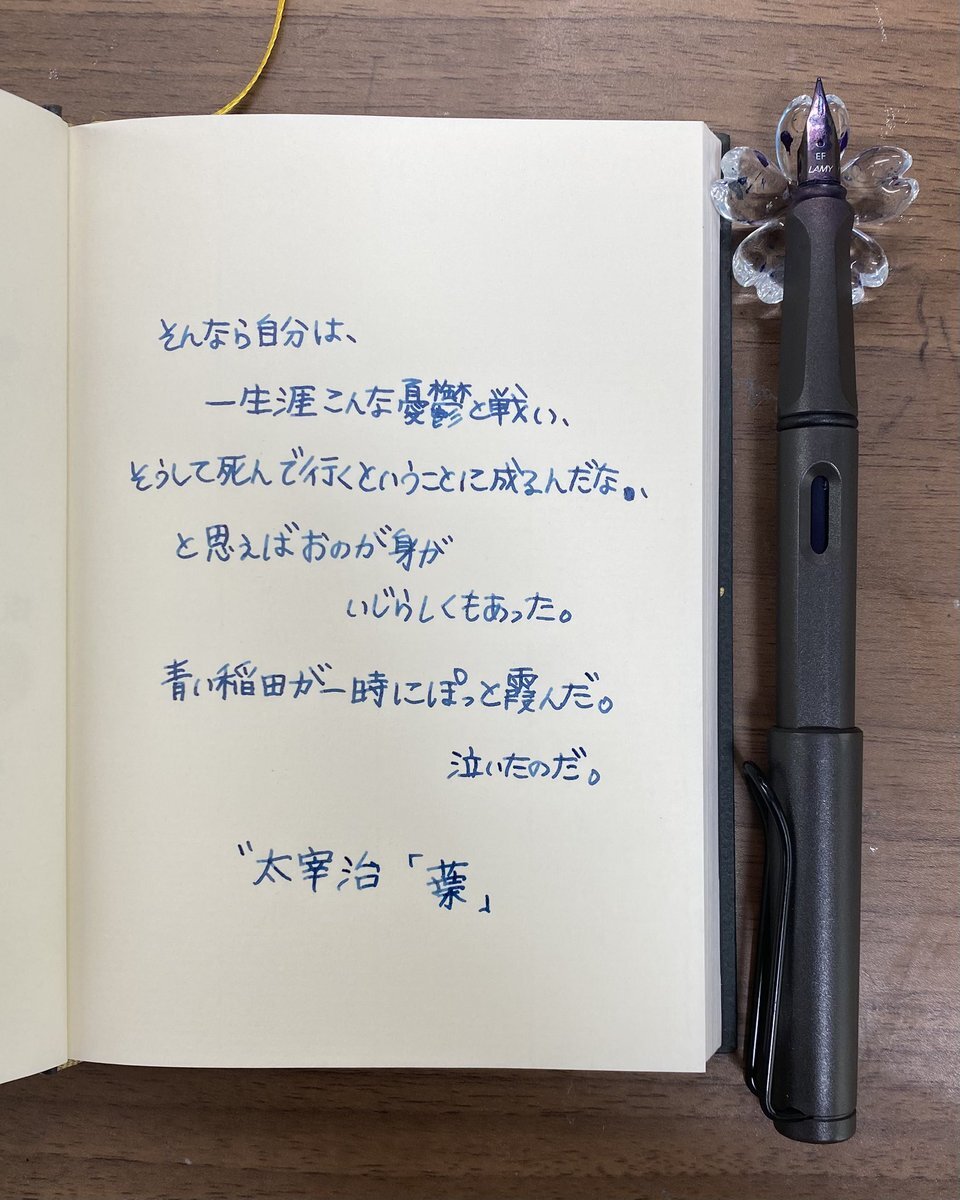 EF
LAMY
そんなら自分は、
一生涯こんな憂鬱と戦い、
そうして死んで行くということに成るんだな。、
と思えばおのが身が
いじらしくもあった。
青い稲田が一時にぽっと霞んだ。
泣いたのだ。
〃太宰治「葉」